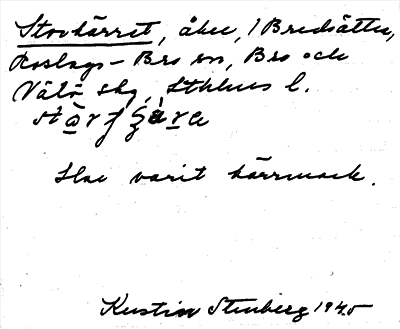 Storkärret, åker, 1 Bredsätter,
Roslags-Bro sn, Bro och
Väto skg, Sthlms l.
Har varit kärrmack.
Kerstin Stenberg 1945